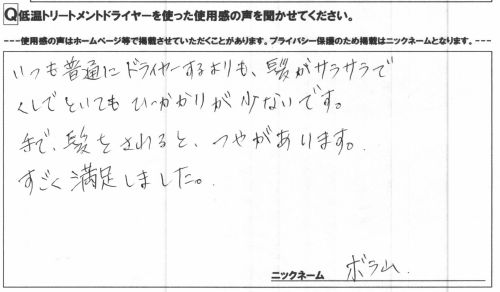 Q低温トリートメントドライヤーを使った使用感の声を聞かせてください。
---使用感の声はホームページ等で掲載させていただくことがあります。プライバシー保護のため掲載はニックネームとなります。---
いつも普通にドライヤーするよりも、髪がサラサラで
くしでといてもひっかかりが少ないです。
手で、髪をされると、つやがあります。
すごく満足しました。
ニックネーム ボラ山.